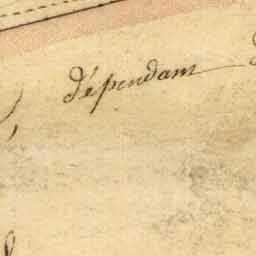 dépendam